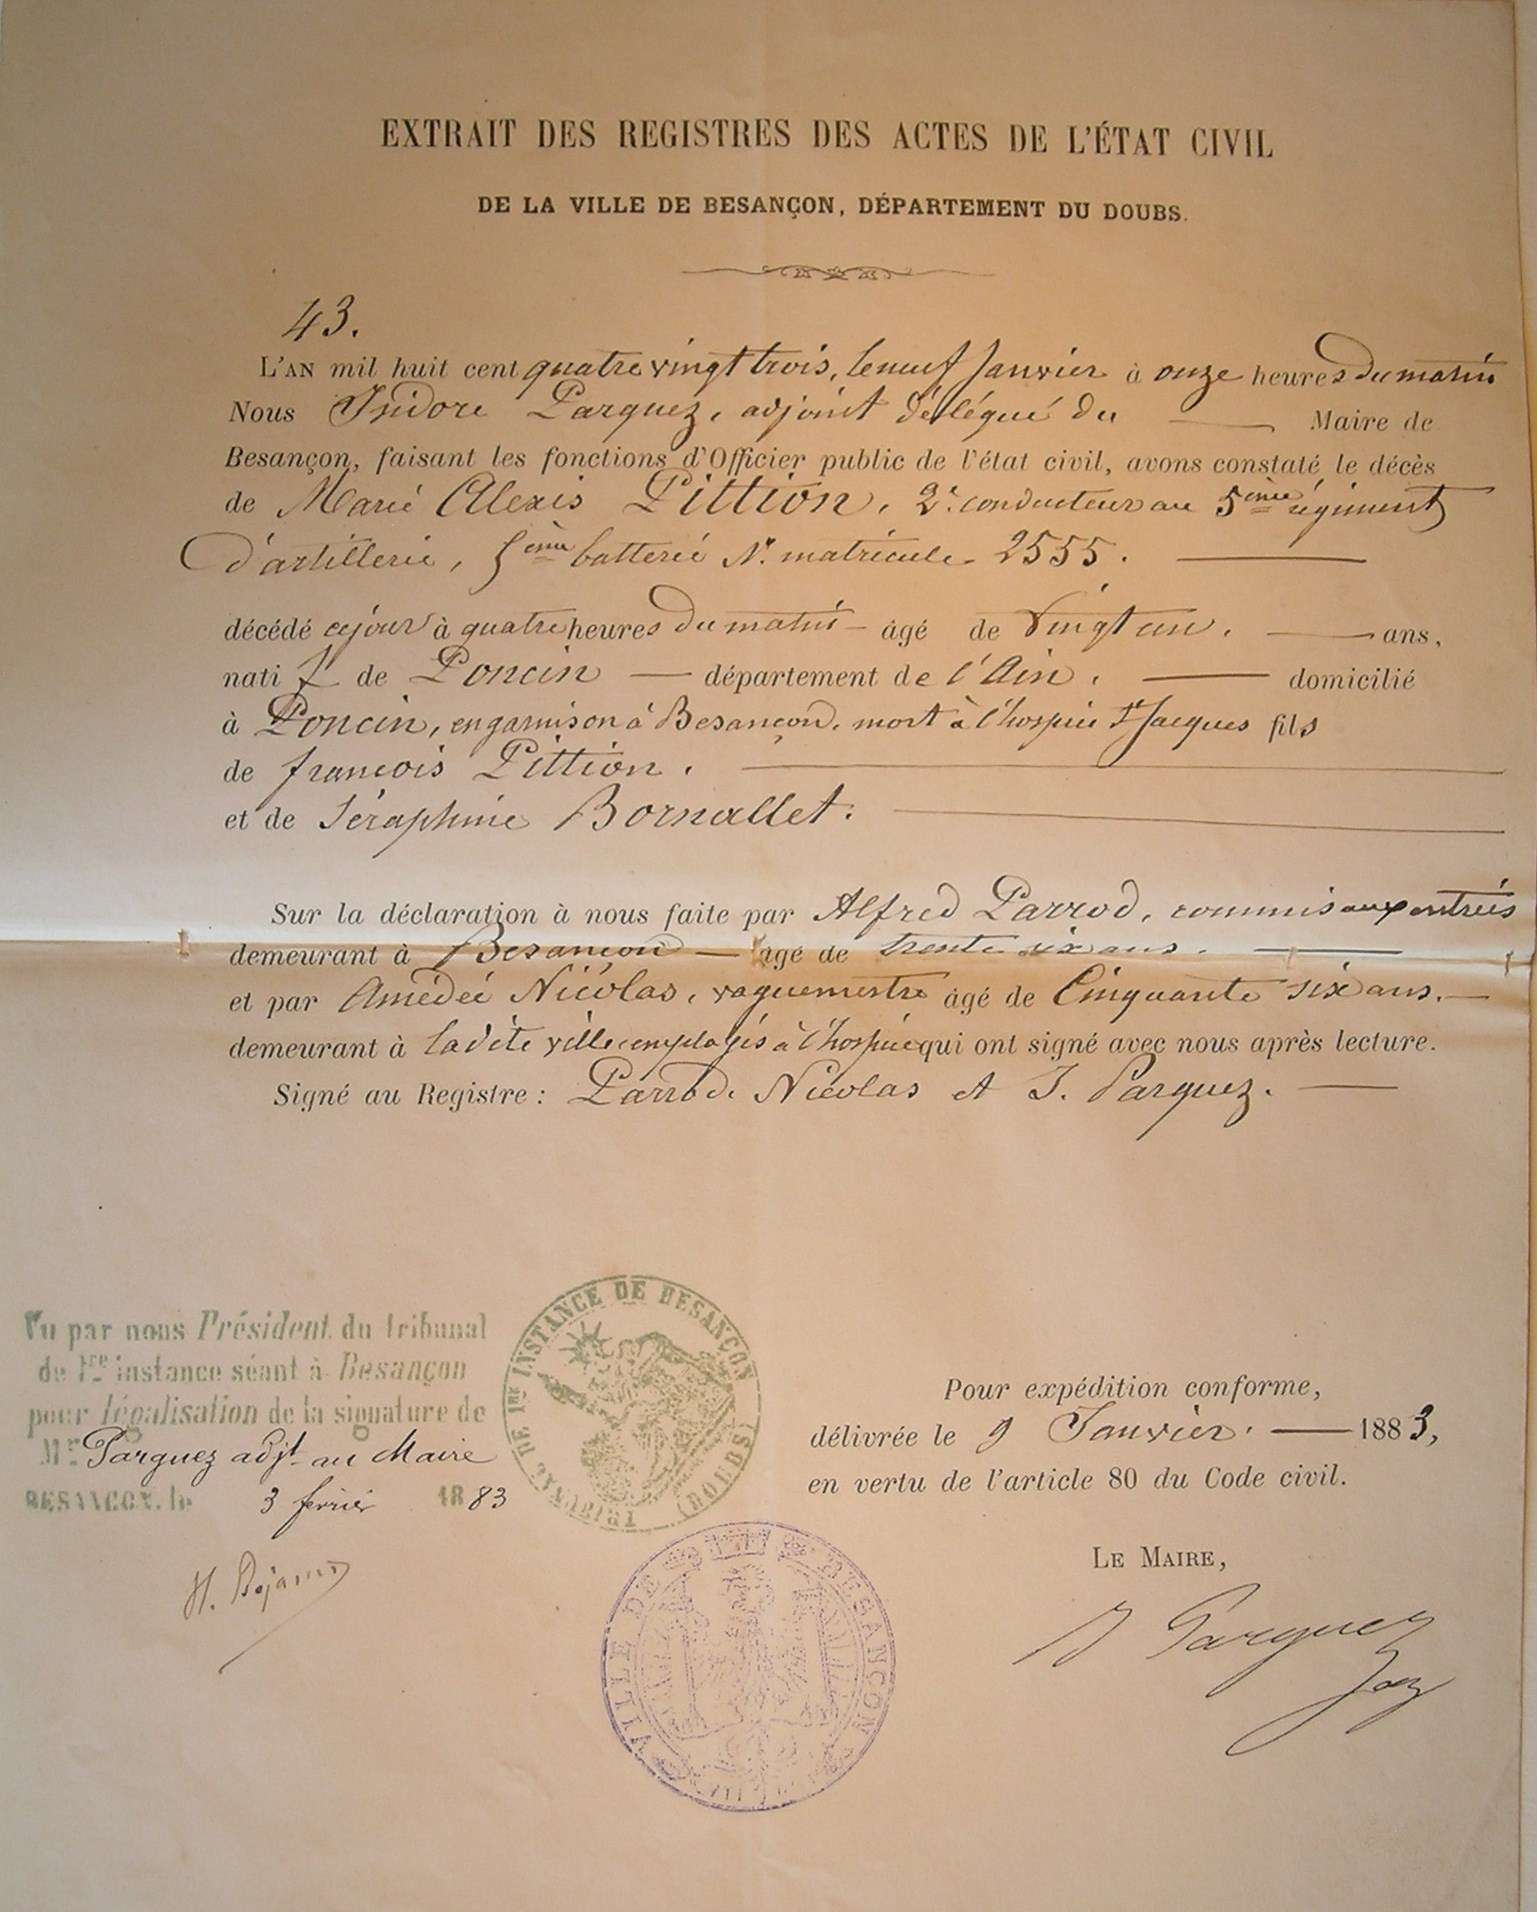 EXTRAIT DES REGISTRES DES ACTES DE L'ÉTAT CIVIL
DE LA VILLE DE BESANÇON, DÉPARTEMENT DU DOUBS.
43.
L'AN mil huit cent quatre vingt trois, le neuf Janvier à onze heures du matin
Nous Isidore Parguez, adjoint délégué du Maire de
Besançon, faisant les fonctions d'Officier public de l'état civil, avons constaté le décès
de Marie Alexis Pittion, 2e conducteur au 5ème régiment
d'artillerie, 5ème batterie No matricule 2555.
décédé ce jour à quatre heures du matin âgé de Vingt un. ans,
natif de Poncin département de l'Ain. domicilié
à Poncin, en garnison à Besançon, mort à l'hospice St Jacques fils
de françois Pittion.
et de Séraphine Bornallet.
Sur la déclaration à nous faite par Alfred Parrod, commis aux entrées
demeurant à Besançon âgé de trente six ans.
et par Amédée Nicolas, vaguemestre âgé de Cinquante six ans.
demeurant à la dite ville employés à l'hospice qui ont signé avec nous après lecture.
Signé au Registre : Parrod. Nicolas et I. Parguez.
Vu par nous Président du tribunal
de 1re instance séant à Besançon
pour légalisation de la signature de
Mr Parguez adjt au Maire
BESANÇON, le 3 fevrier 1883
TRIBUNAL DE 1RE INSTANCE DE BESANÇON (DOUBS)
Pour expédition conforme,
délivrée le 9 Janvier. 1883,
en vertu de l'article 80 du Code civil.
LE MAIRE,
I Parguez
VILLE DE BESANÇON